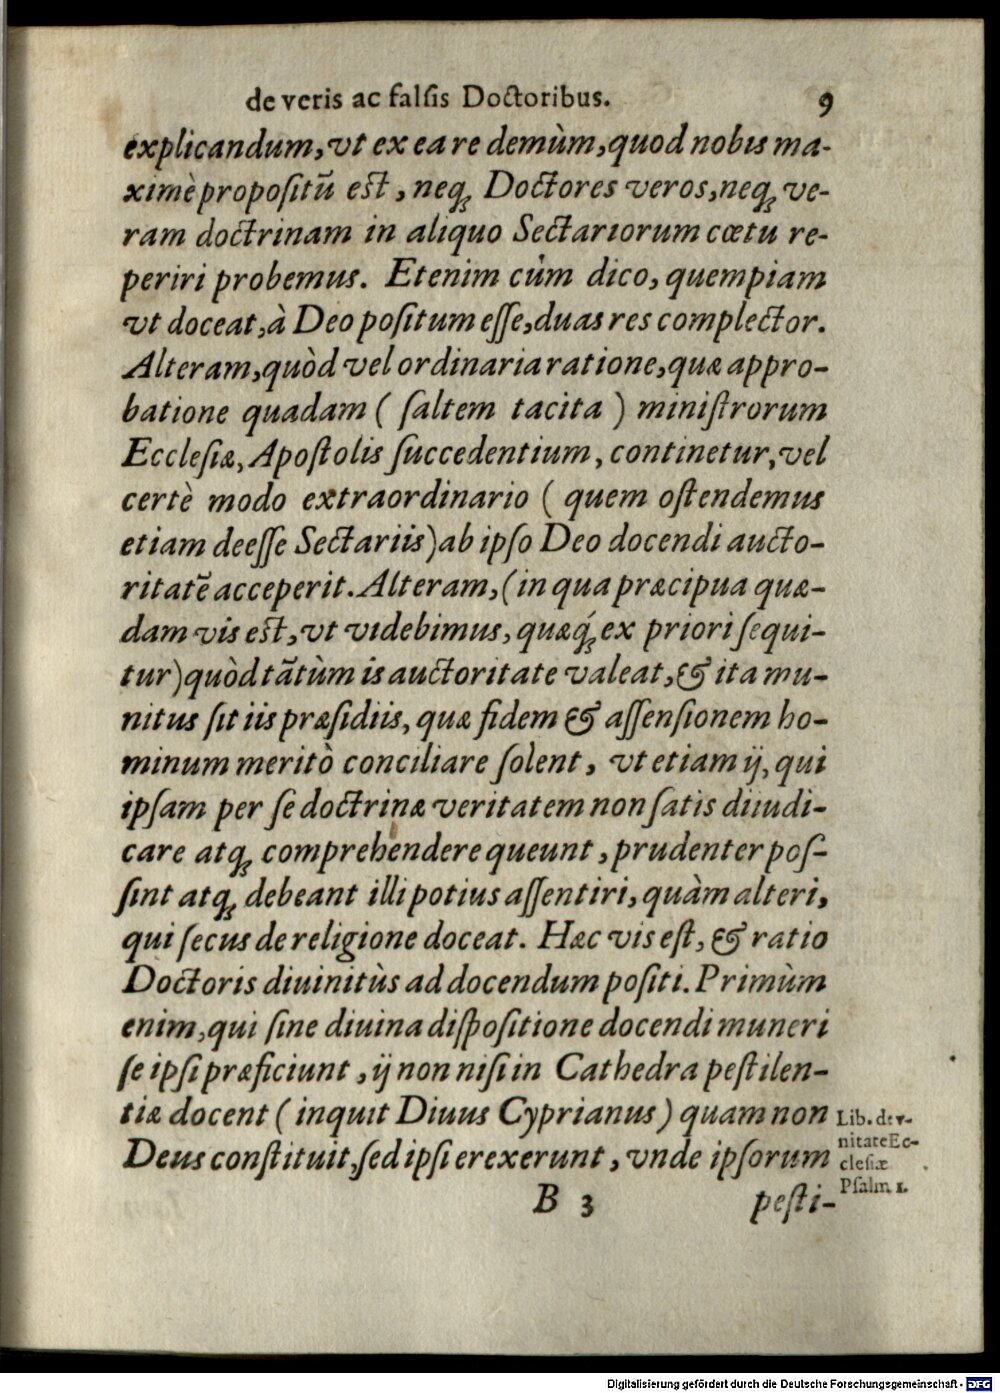 de veris ac falſis Doctoribus. 9
explicandum, vt ex ea re demùm, quod nobis ma-
ximè propoſitū est, neq; Doctores veros, neq; ve-
ram doctrinam in aliquo Sectariorum cœtu re-
periri probemus. Etenim cùm dico, quempiam
vt doceat, à Deo poſitum eſſe, duas res complector.
Alteram, quòd vel ordinaria ratione, quæ appro-
batione quadam ( ſaltem tacita ) miniſtrorum
Eccleſiæ, Apoſtolis ſuccedentium, continetur, vel
certè modo extraordinario ( quem oſtendemus
etiam deeſſe Sectariis) ab ipſo Deo docendi aucto-
ritatē acceperit. Alteram, (in qua præcipua quæ-
dam vis est, vt videbimus, quæq́; ex priori ſequi-
tur) quòd tātùm is auctoritate valeat, & ita mu-
nitus ſit iis præſidiis, quæ fidem & aſſenſionem ho-
minum meritò conciliare ſolent, vt etiam ij, qui
ipſam per ſe doctrinæ veritatem non ſatis diiudi-
care atq; comprehendere queunt, prudenter poſ-
ſint atq; debeant illi potius aſſentiri, quàm alteri,
qui ſecus de religione doceat. Hæc vis eſt, & ratio
Doctoris diuinitùs ad docendum poſiti. Primùm
enim, qui ſine diuina diſpoſitione docendi muneri
ſe ipſi præficiunt, ij non niſi in Cathedra peſtilen-
tiæ docent ( inquit Diuus Cyprianus) quam non
Deus conſtituit, ſed ipſi erexerunt, vnde ipſorum
Lib. de v-
nitate Ec-
cleſiæ
Pſalm. 1.
B 3 peſti-
Digitalisierung gefördert durch die Deutsche Forschungsgemeinschaft - DFG